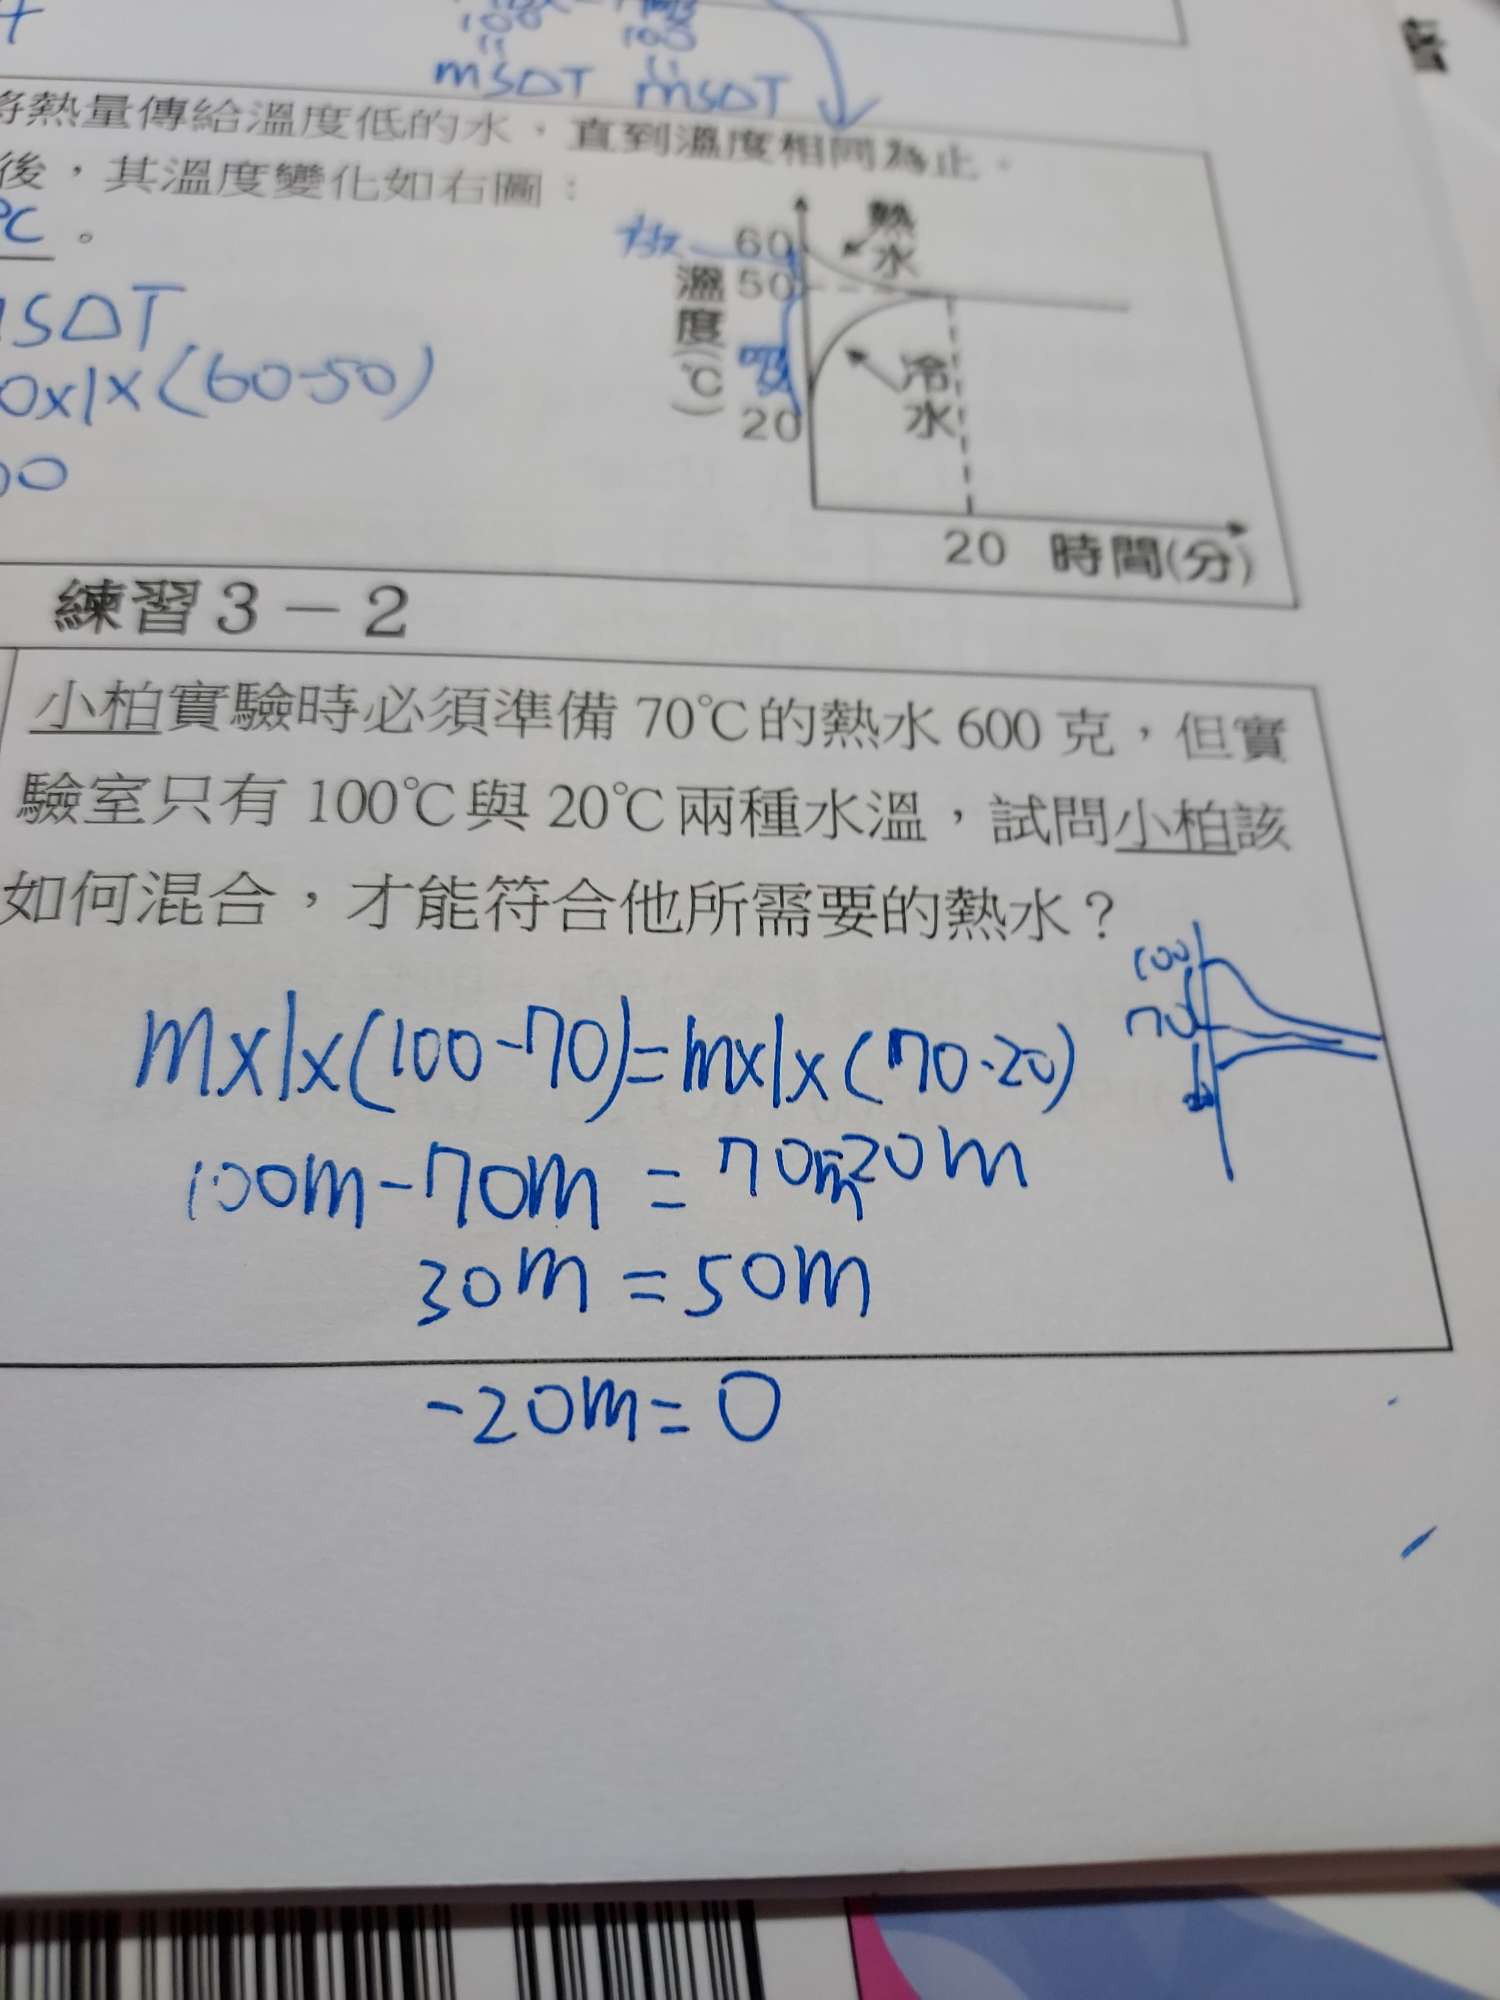 100
100
11
11
msΔT msΔT
將熱量傳給溫度低的水，直到溫度相同為止。
後，其溫度變化如右圖：
℃。
SΔT
0x1x(60-50)
00
溫度(℃)
60
50
20
熱水
冷水
20 時間(分)
練習3－2
小柏實驗時必須準備70℃的熱水600克，但實
驗室只有100℃與20℃兩種水溫，試問小柏該
如何混合，才能符合他所需要的熱水？
100
70
mx1x(100-70)=mx1x(70-20)
100m-70m=70m-20m
30m=50m
-20m=0